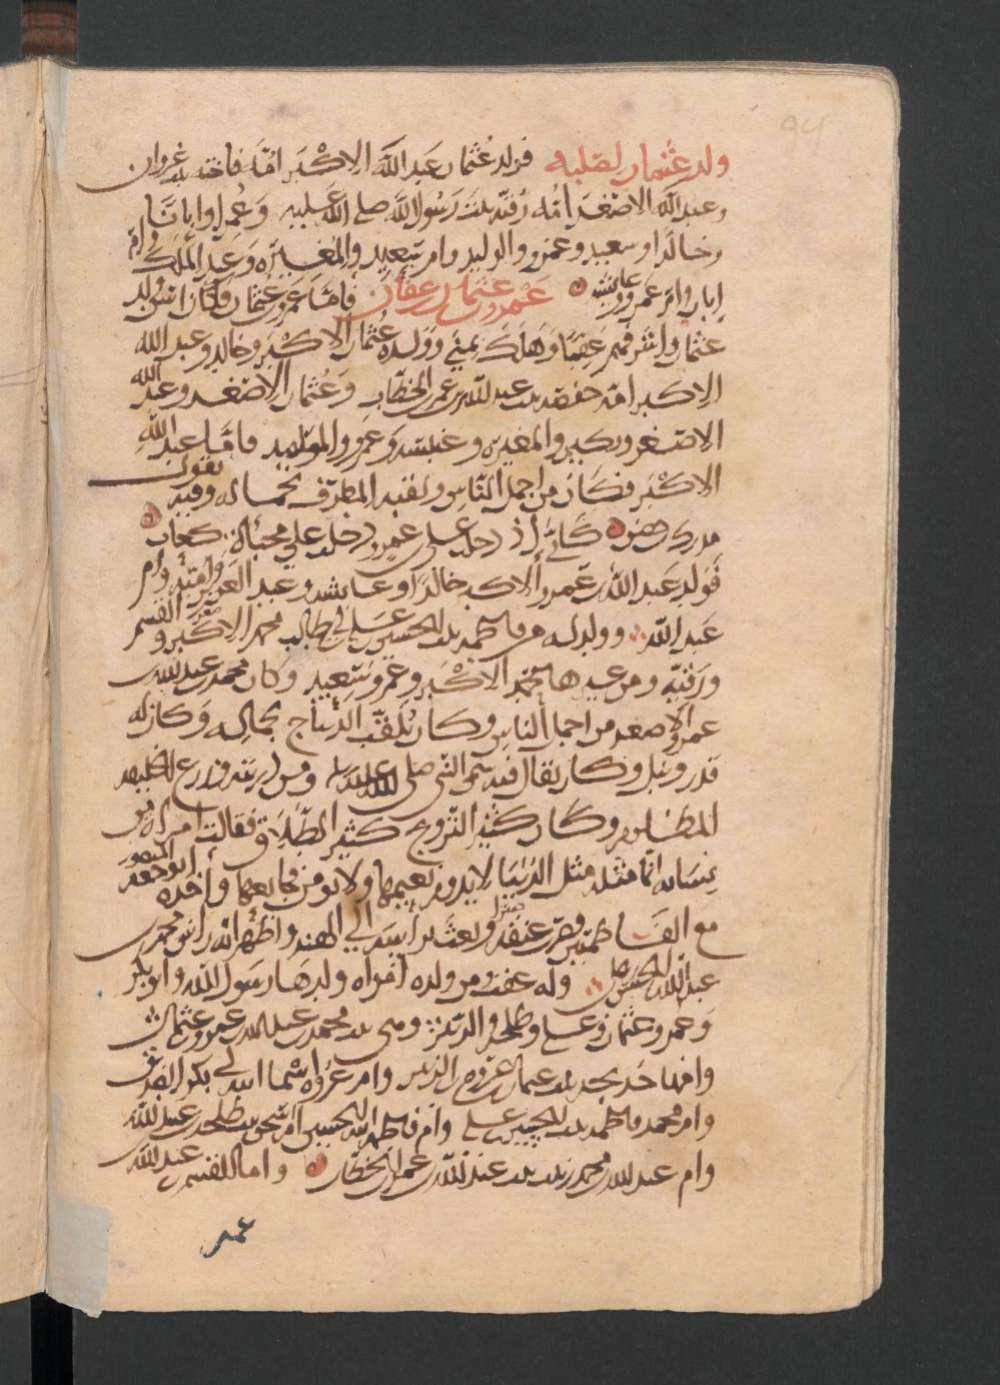 ولد عثمان لصلبه فولد عثمان عبد الله الاكبر امه فاخته بنت غزوان
وعبد الله الاصغر امه رقيه بنت رسول الله صلى الله عليه وعمرا وابانا
وخالدا وسعيد وعمر والوليد وام سعيد والمغيره وعبد الملك وام
ابان وام عمرو وعايشه عمرو بن عثمان بن عفان فاما عمرو بن عثمان فكان اسن ولد
عثمان واشرفهم عقبا وهلك بمنى وولده عثمان الاكبر وخالد وعبد الله
الاكبر امه حفصه بنت عبد الله بن عمر بن الخطاب وعثمان الاصغر وعبد الله
الاصغر وبكير والمغيره وعنبسه وعمر والوليد فاما عبد الله
الاكبر فكان من اجمل الناس ولقبه المطرف لجماله وفيه يقول
مدرك بن حصن كاني اذ دخلت على عمرو دخلت على مخباة كعاب
فولد عبد الله بن عمرو الاكبر خالدا وعايشه وعبد العزيز واميه وام
عبد الله وولد له من فاطمه بنت الحسين بن علي بن ابي طالب محمد الاكبر والقسم
ورقيه ومن غيرها محمد الاكبر وعمرو وسعيد وكان محمد بن عبد الله بن
عمرو الاصغر من اجمل الناس وكان يلقب الديباج بجماله وكان له
قدر ونبل وكان يقال فيه سمي النبي صلى الله عليه ومن ذريته وزرع الخليفه
المظلوم وكان كثير التزوج كثير الطلاق فقالت امراه من
نسايه انما مثله مثل الدنيا لا يدوم نعيمها ولا تومن فجايعها واخذه ابو جعفر المنصور
مع الفاطميين وضرب عنقه وبعث براسه الى الهند واظهر انه راس محمد بن
عبد الله بن الحسن وله عقب ومن ولده امراه ولدها رسول الله وابو بكر
وعمر وعثمان وعلي وطلحه والزبير وهي بنت محمد بن عبد الله بن عمرو بن عثمان
وامها خديجه بنت عثمان بن عروه بن الزبير وام عروه اسما ابنه ابي بكر الصديق
وام محمد فاطمه بنت الحسين بن علي وام فاطمه ابنه الحسين ام اسحق بنت طلحه بن عبيد الله
وام عبد الله بن محمد زينب بنت عبد الله بن عمر بن الخطاب واما القسم بن عبد الله
عمر